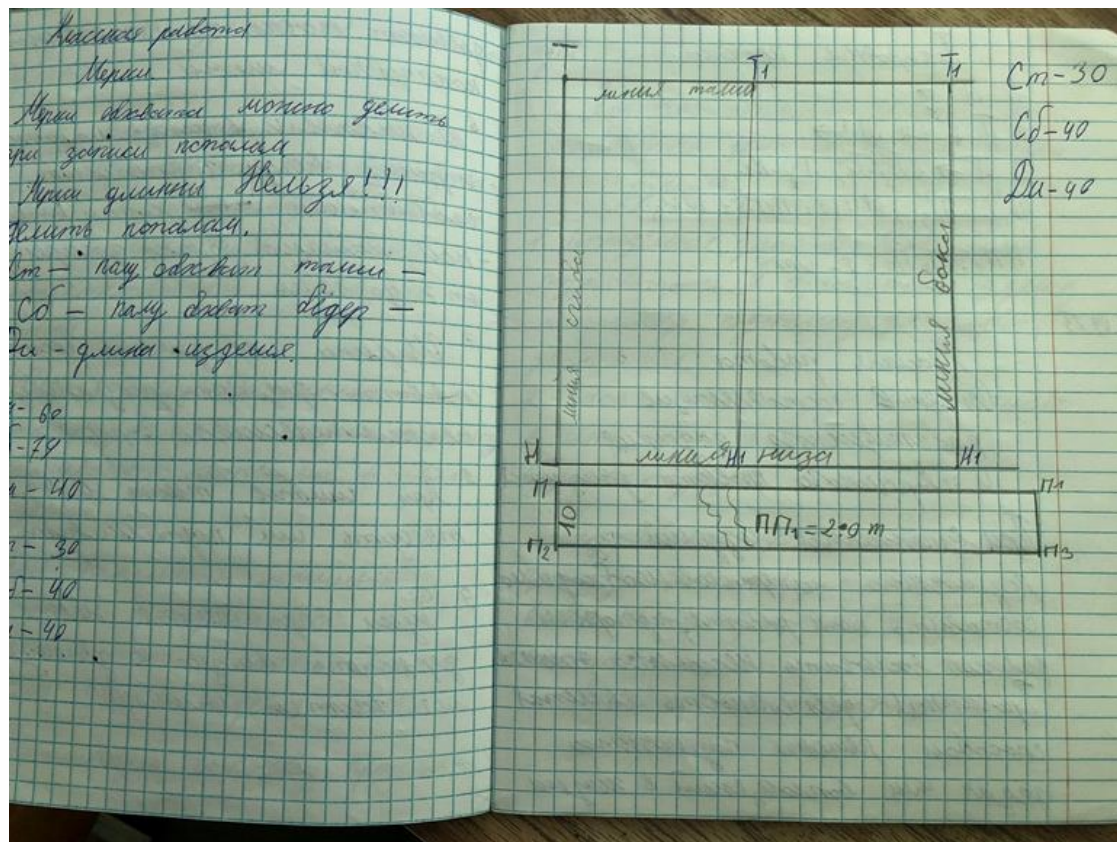 Классная работа
Мерки.
Мерки обхвата можно делить
при записи пополам
Мерки длинны Нельзя!!!
делить пополам.
Ст - полу обхват талии -
Сб - полу обхват бедер -
Ди - длина изделия.
- 60
- 79
- 40
- 30
- 40
- 40
Т Т1 Т1
линия талии
Ст-30
Сб-40
Ди-40
линия сгиба
линия бока
Н линия Н1 низа Н1
П П1
10
ПП1 = 2·0 т
П2 П3